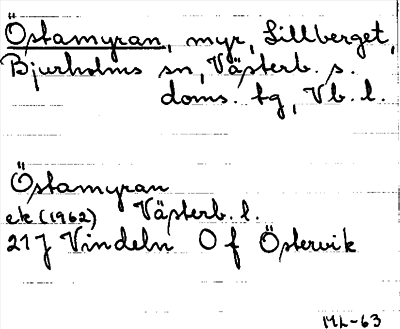 Östamyran, myr, Lillberget,
Bjurholms sn, Västerb. s.
doms. tg, Vb. l.
Östamyran
ek (1962) Västerb. l.
21J Vindeln O f Östervik
ML-63